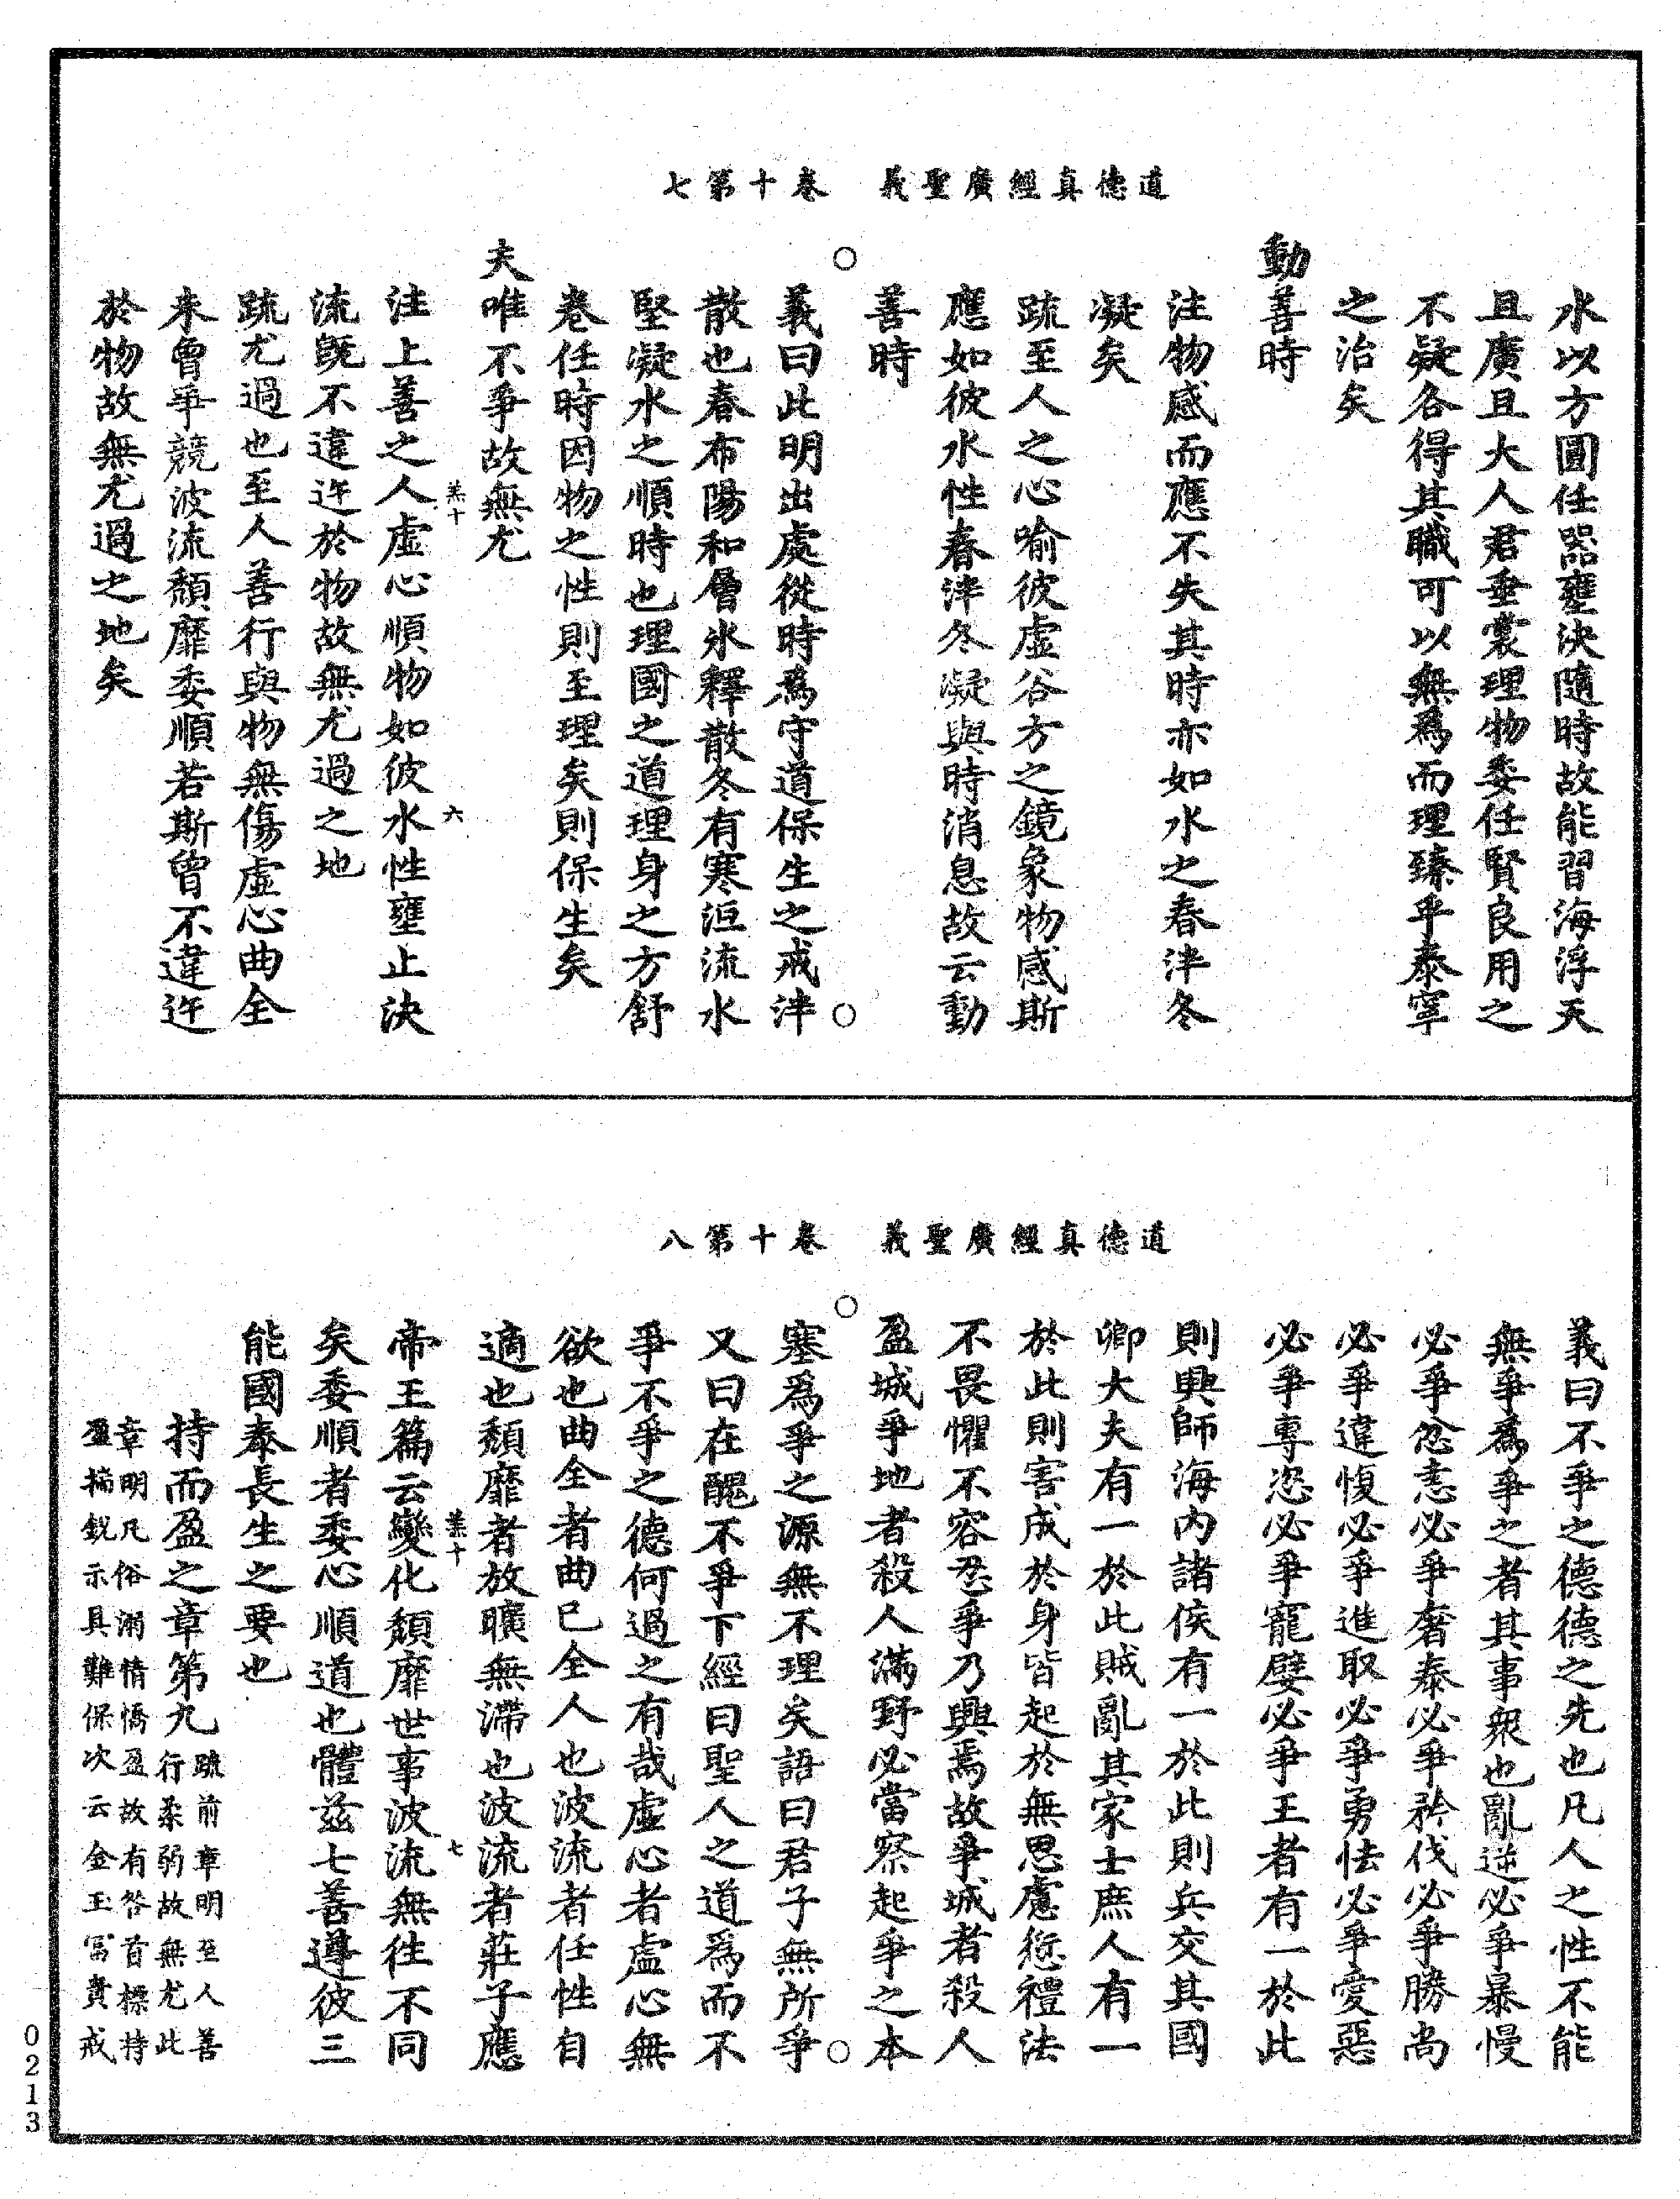 道德真經廣聖義　卷十第七
水以方圓任器壅決隨時故能習海浮天
且廣且大人君垂裳理物委任賢良用之
不凝各得其職可以無爲而理臻乎泰寧
之治矣
動善時
注物感而應不失其時亦如水之春泮冬
凝矣
疏至人之心喻彼虛谷方之鏡象物感斯
應如彼水性春泮冬凝與時消息故云動
善時
義曰此明出處從時爲守道保生之戒泮
散也春布陽和層氷釋散冬有寒沍流水
堅凝水之順時也理國之道理身之方舒
卷任時因物之性則至理矣則保生矣
夫唯不爭故無尤
注上善之人虛心順物如彼水性壅止決
流旣不違迕於物故無尤過之地
疏尤過也至人善行與物無傷虛心曲全
未曾爭競波流頹靡委順若斯曾不違迕
於物故無尤過之地矣
羔十
六
道德真經廣聖義　卷十第八
義曰不爭之德德之先也凡人之性不能
無爭爲爭之者其事衆也亂逆必爭暴慢
必爭忿恚必爭奢泰必爭矜伐必爭勝尚
必爭違愎必爭進取必爭勇怯必爭愛惡
必爭專恣必爭寵嬖必爭王者有一於此
則興師海內諸侯有一於此則兵交其國
卿大夫有一於此賊亂其家士庶人有一
於此則害成於身皆起於無思慮愆禮法
不畏懼不容忍爭乃興焉故爭城者殺人
盈城爭地者殺人滿野必當察起爭之本
塞爲爭之源無不理矣語曰君子無所爭
又曰在醜不爭下經曰聖人之道爲而不
爭不爭之德何過之有哉虛心者虛心無
欲也曲全者曲已全人也波流者任性自
適也頹靡者放曠無滯也波流者莊子應
帝王篇云變化頹靡世事波流無往不同
矣委順者委心順道也體茲七善遵彼三
能國泰長生之要也
羔十
七
持而盈之章第九
疏前章明至人善
行柔弱故無尤此
章明凡俗溺情憍盈故有咎首標持
盈揣銳示具難保次云金玉富貴戒
0213